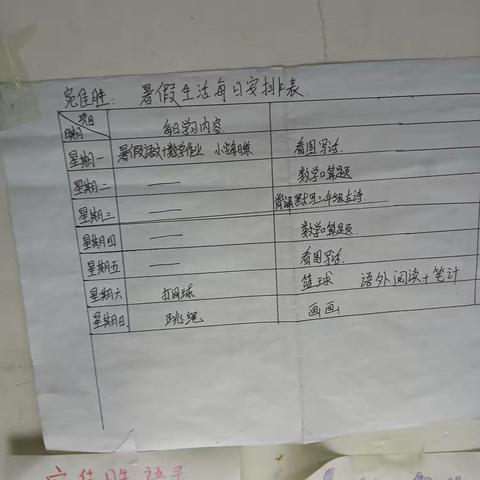 宛佳胜: 暑假生活每日安排表.
项目
期目 每日学习内容.
星期一 暑假语文+数学作业 小学每日练 看图写话.
星期二 —— 数学口算题
星期三 —— 背诵默写二年级古诗.
星期四 —— 数学口算题.
星期五 —— 看图写话.
星期六 打网球 篮球 语外阅读+笔计
星期日 跳绳. 画画